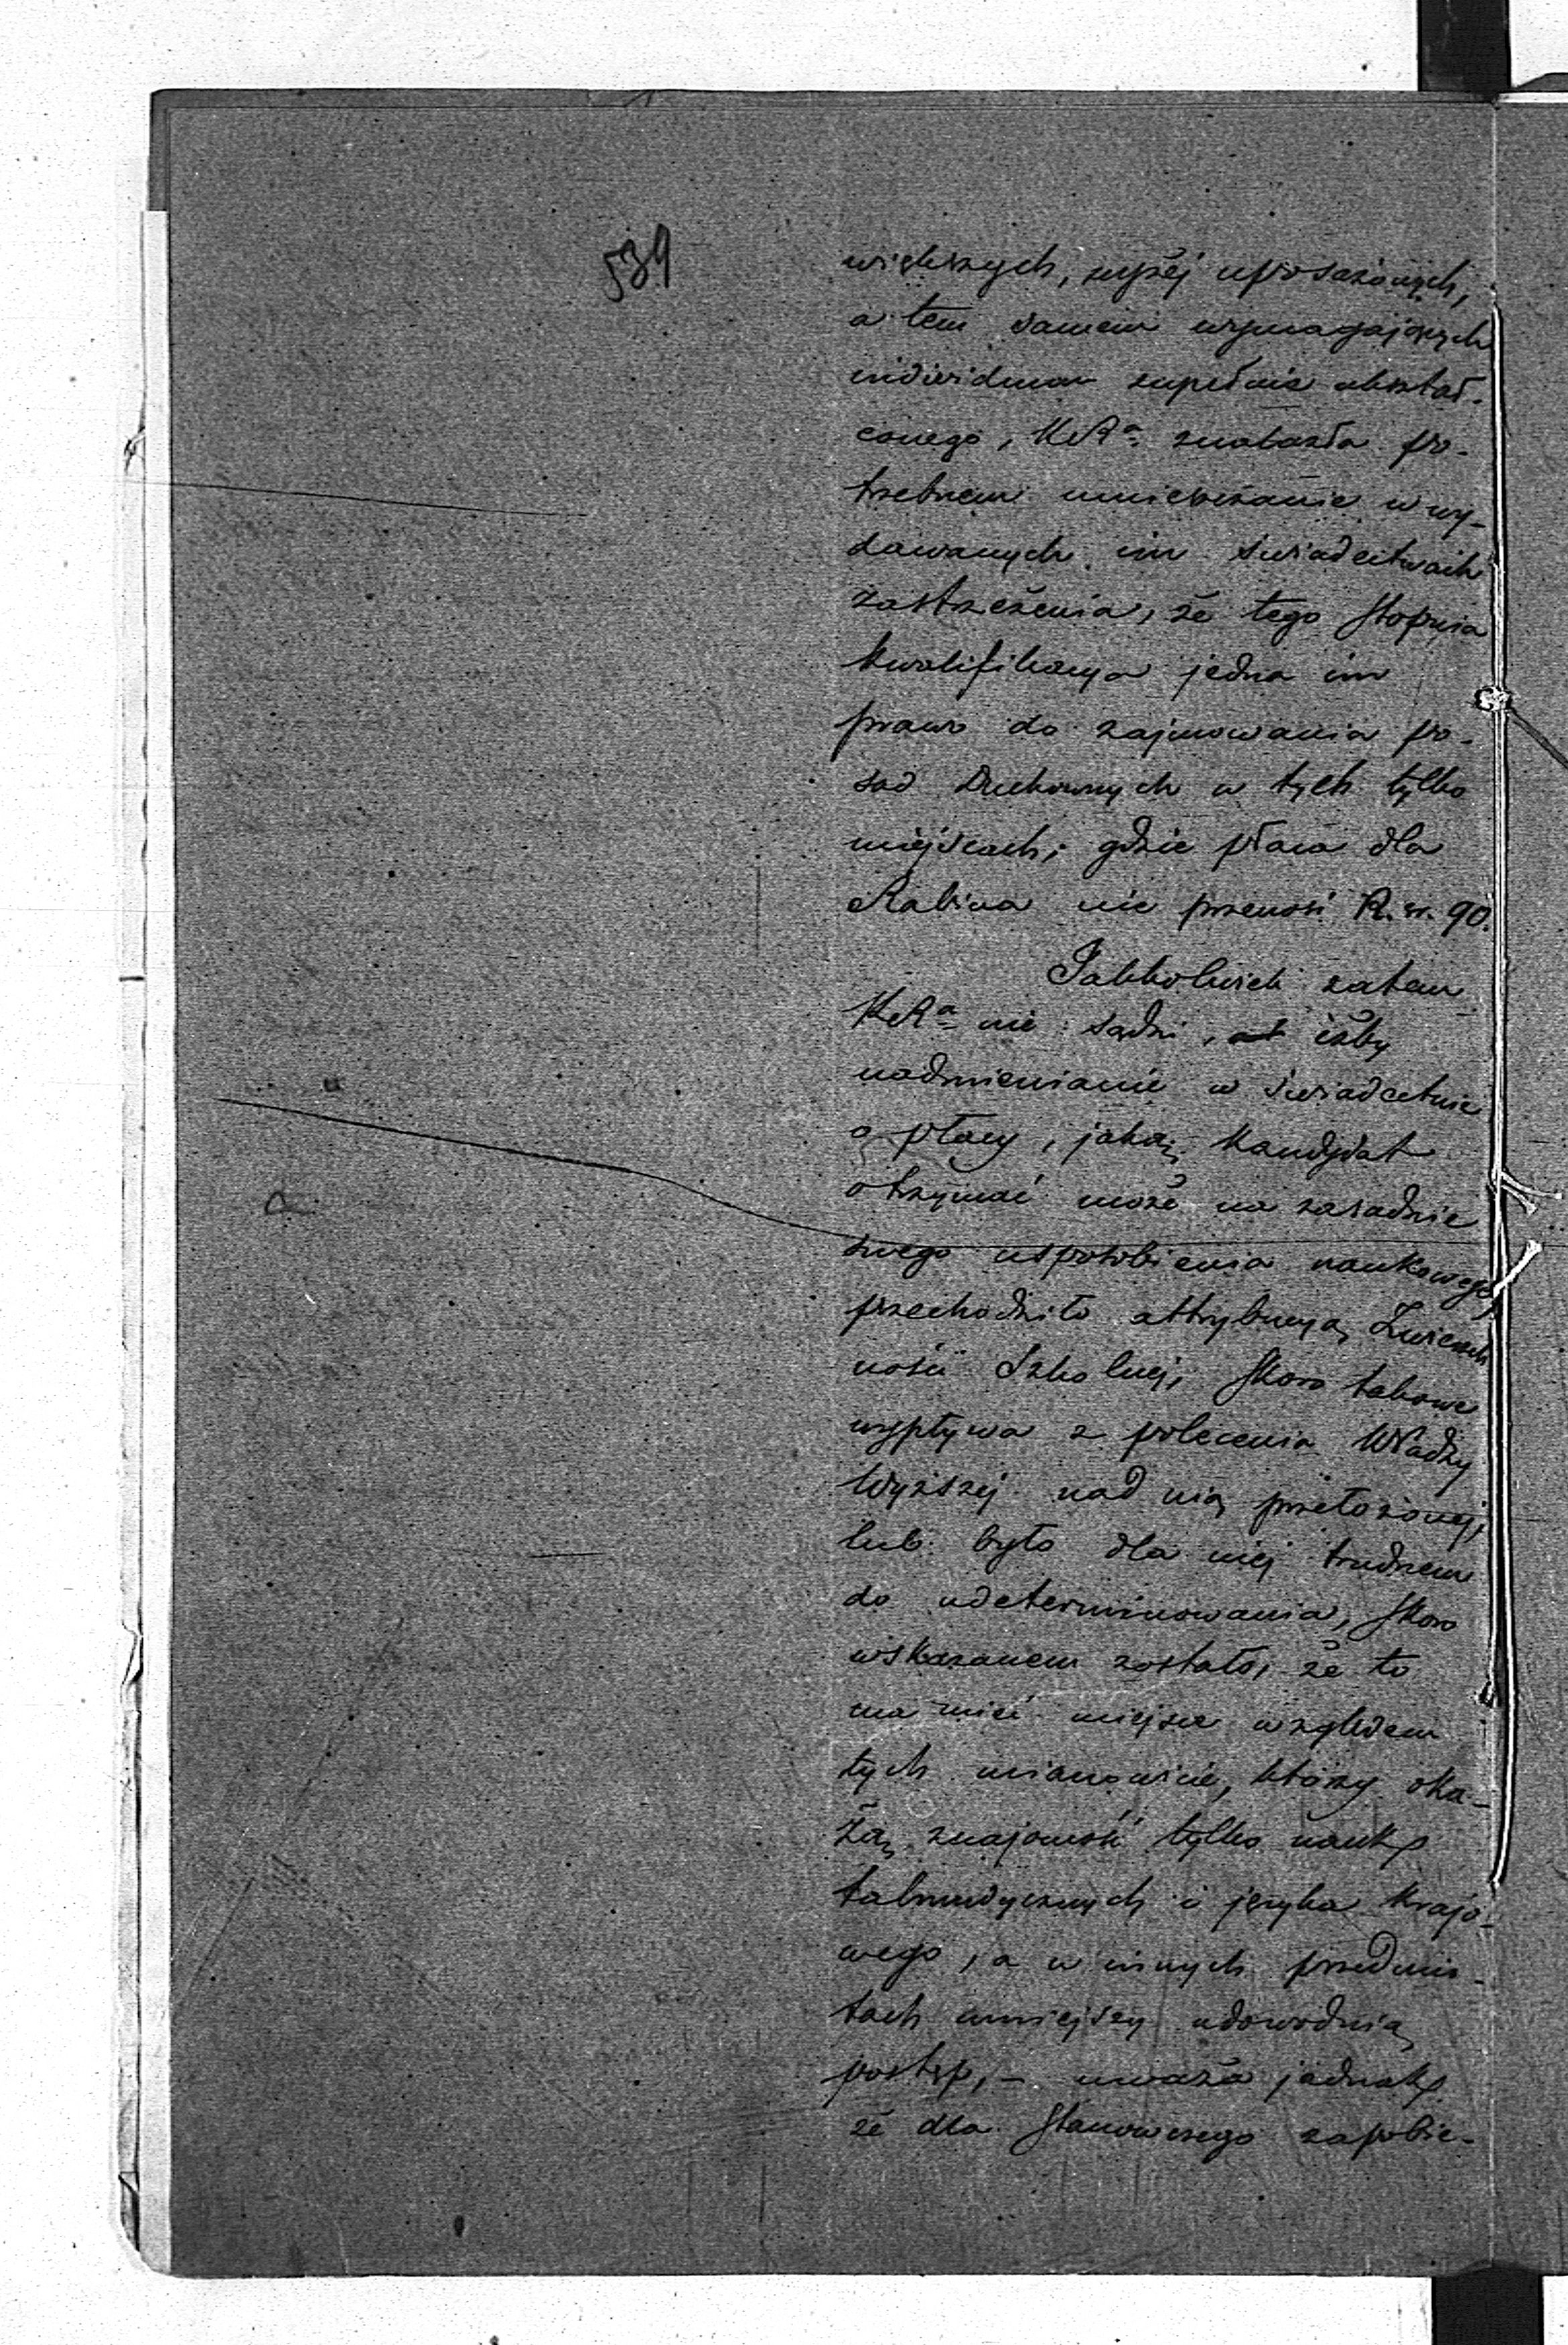 539
większych, wyżej uposażonych,
a tem samem wymagających
individuum zupełnie ukształ-
conego, KRRa. znalazła po-
trzebnem umieszczanie w wy-
dawanych im świadectwach
zastrzeżenia, że tego stopnia
kwalifikacya jedna im
prawo do zajmowania po-
sad Duchownych w tych tylko
miejscach, gdzie płaca dla
Rabina nie przenosi R. sr. 90.
Jakkolwiek zatem
KRRa. nie sądzi, iżby
nadmienianie w świadectwie
o płacy, jaką kandydat
otrzymać może na zasadzie
swego usposobienia naukowego
przechodziło attrybucyą Zwierzch
ności Szkolnej, skoro takowe
wypływa z polecenia Władzy
Wyższej nad nią przełożonej,
lub było dla niej trudnem
do udeterminowania, skoro
wskazanem zostało, że to
ma mieć miejsce względem
tych mianowicie, którzy oka-
żą znajomość tylko nauk
talmudycznych i języka krajo-
wego, a w innych przedmio-
tach mniejszy udowodnią
postęp, – uważa jednak
że dla stanowczego zapobie-